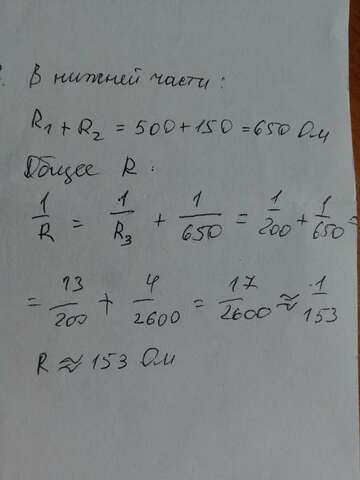 В нижней части:
R₁ + R₂ = 500 + 150 = 650 Ом
Общее R:
1/R = 1/R₃ + 1/650 = 1/200 + 1/650 =
= 13/200 + 4/2600 = 17/2600 ≈ 1/153
R ≈ 153 Ом